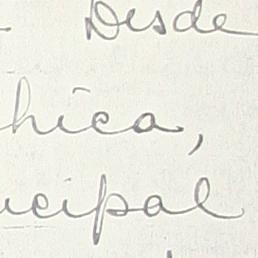 Desde
hica,
ucipal